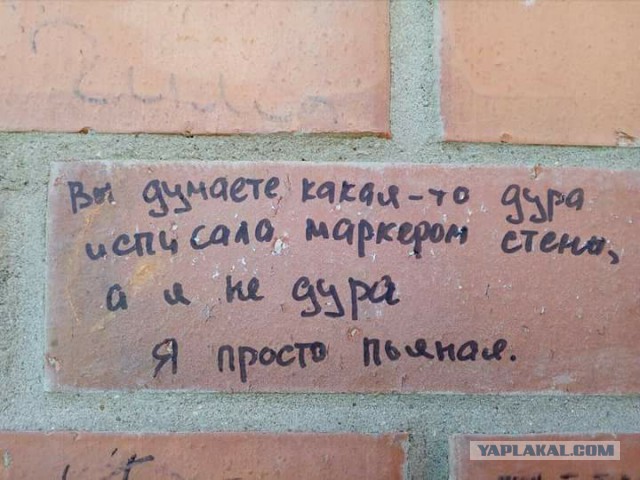 Вы думаете какая-то дура
исписала маркером стены,
а я не дура
Я просто пьяная.
YAPLAKAL.COM